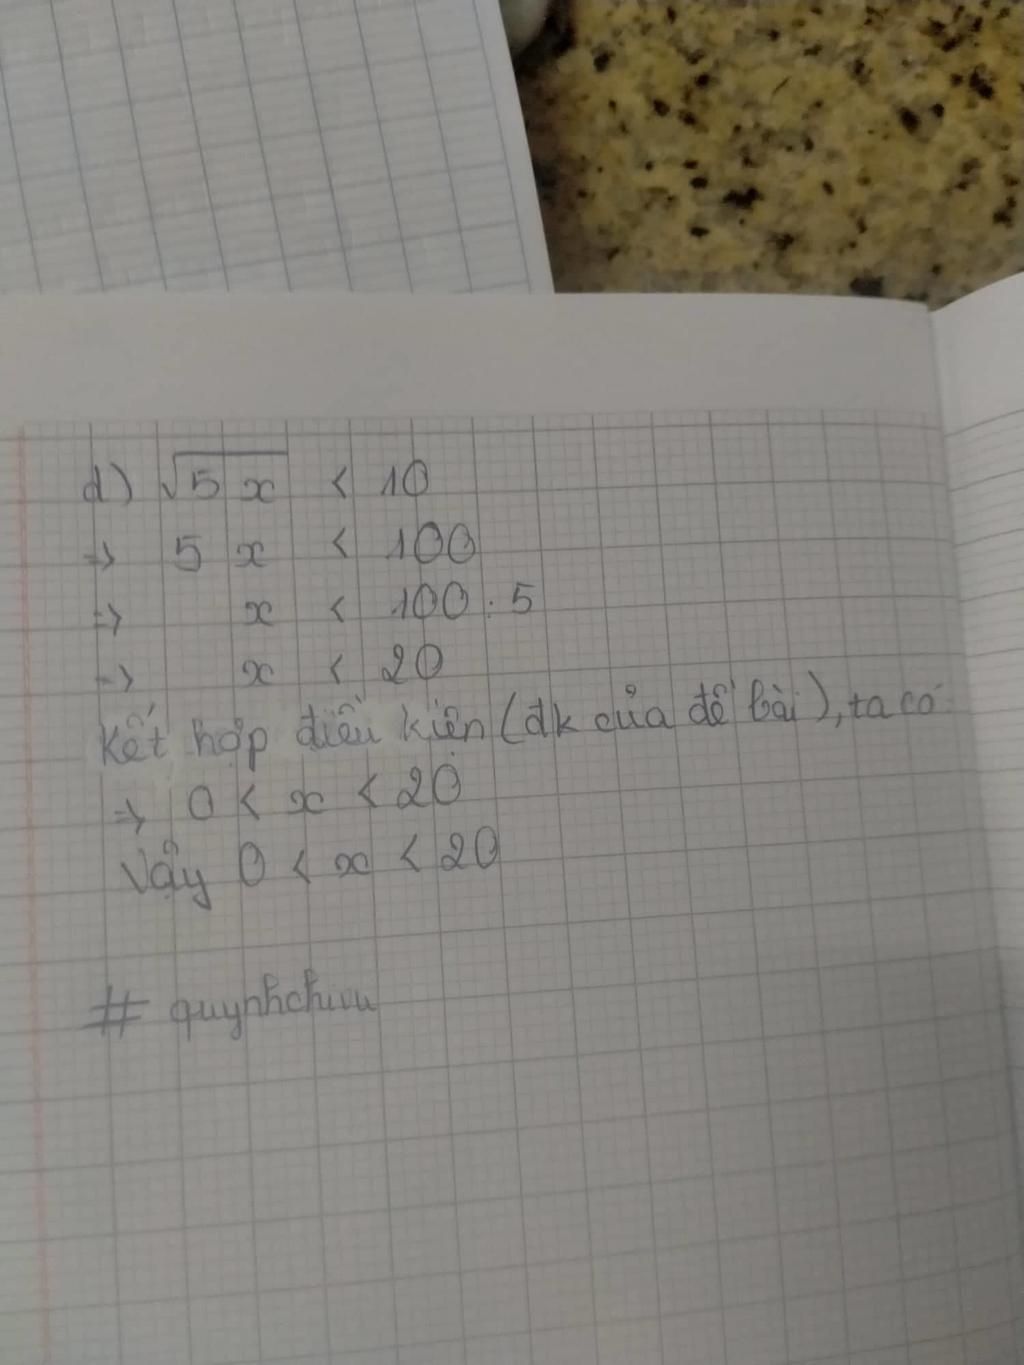 d) √5x < 10
=> 5x < 100
=> x < 100 : 5
=> x < 20
Kết hợp điều kiện (đk của đề bài), ta có:
=> 0 < x < 20
Vậy 0 < x < 20
# quynhchuu